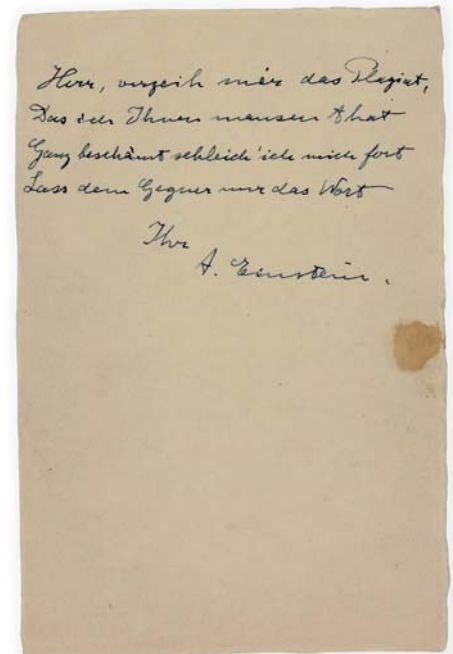 Herr, verzeih mir das Plagiat,
Das ich Ihnen mausen that
Ganz beschämt schleich' ich mich fort
Lass dem Gegner nur das Wort
Ihr
A. Einstein.